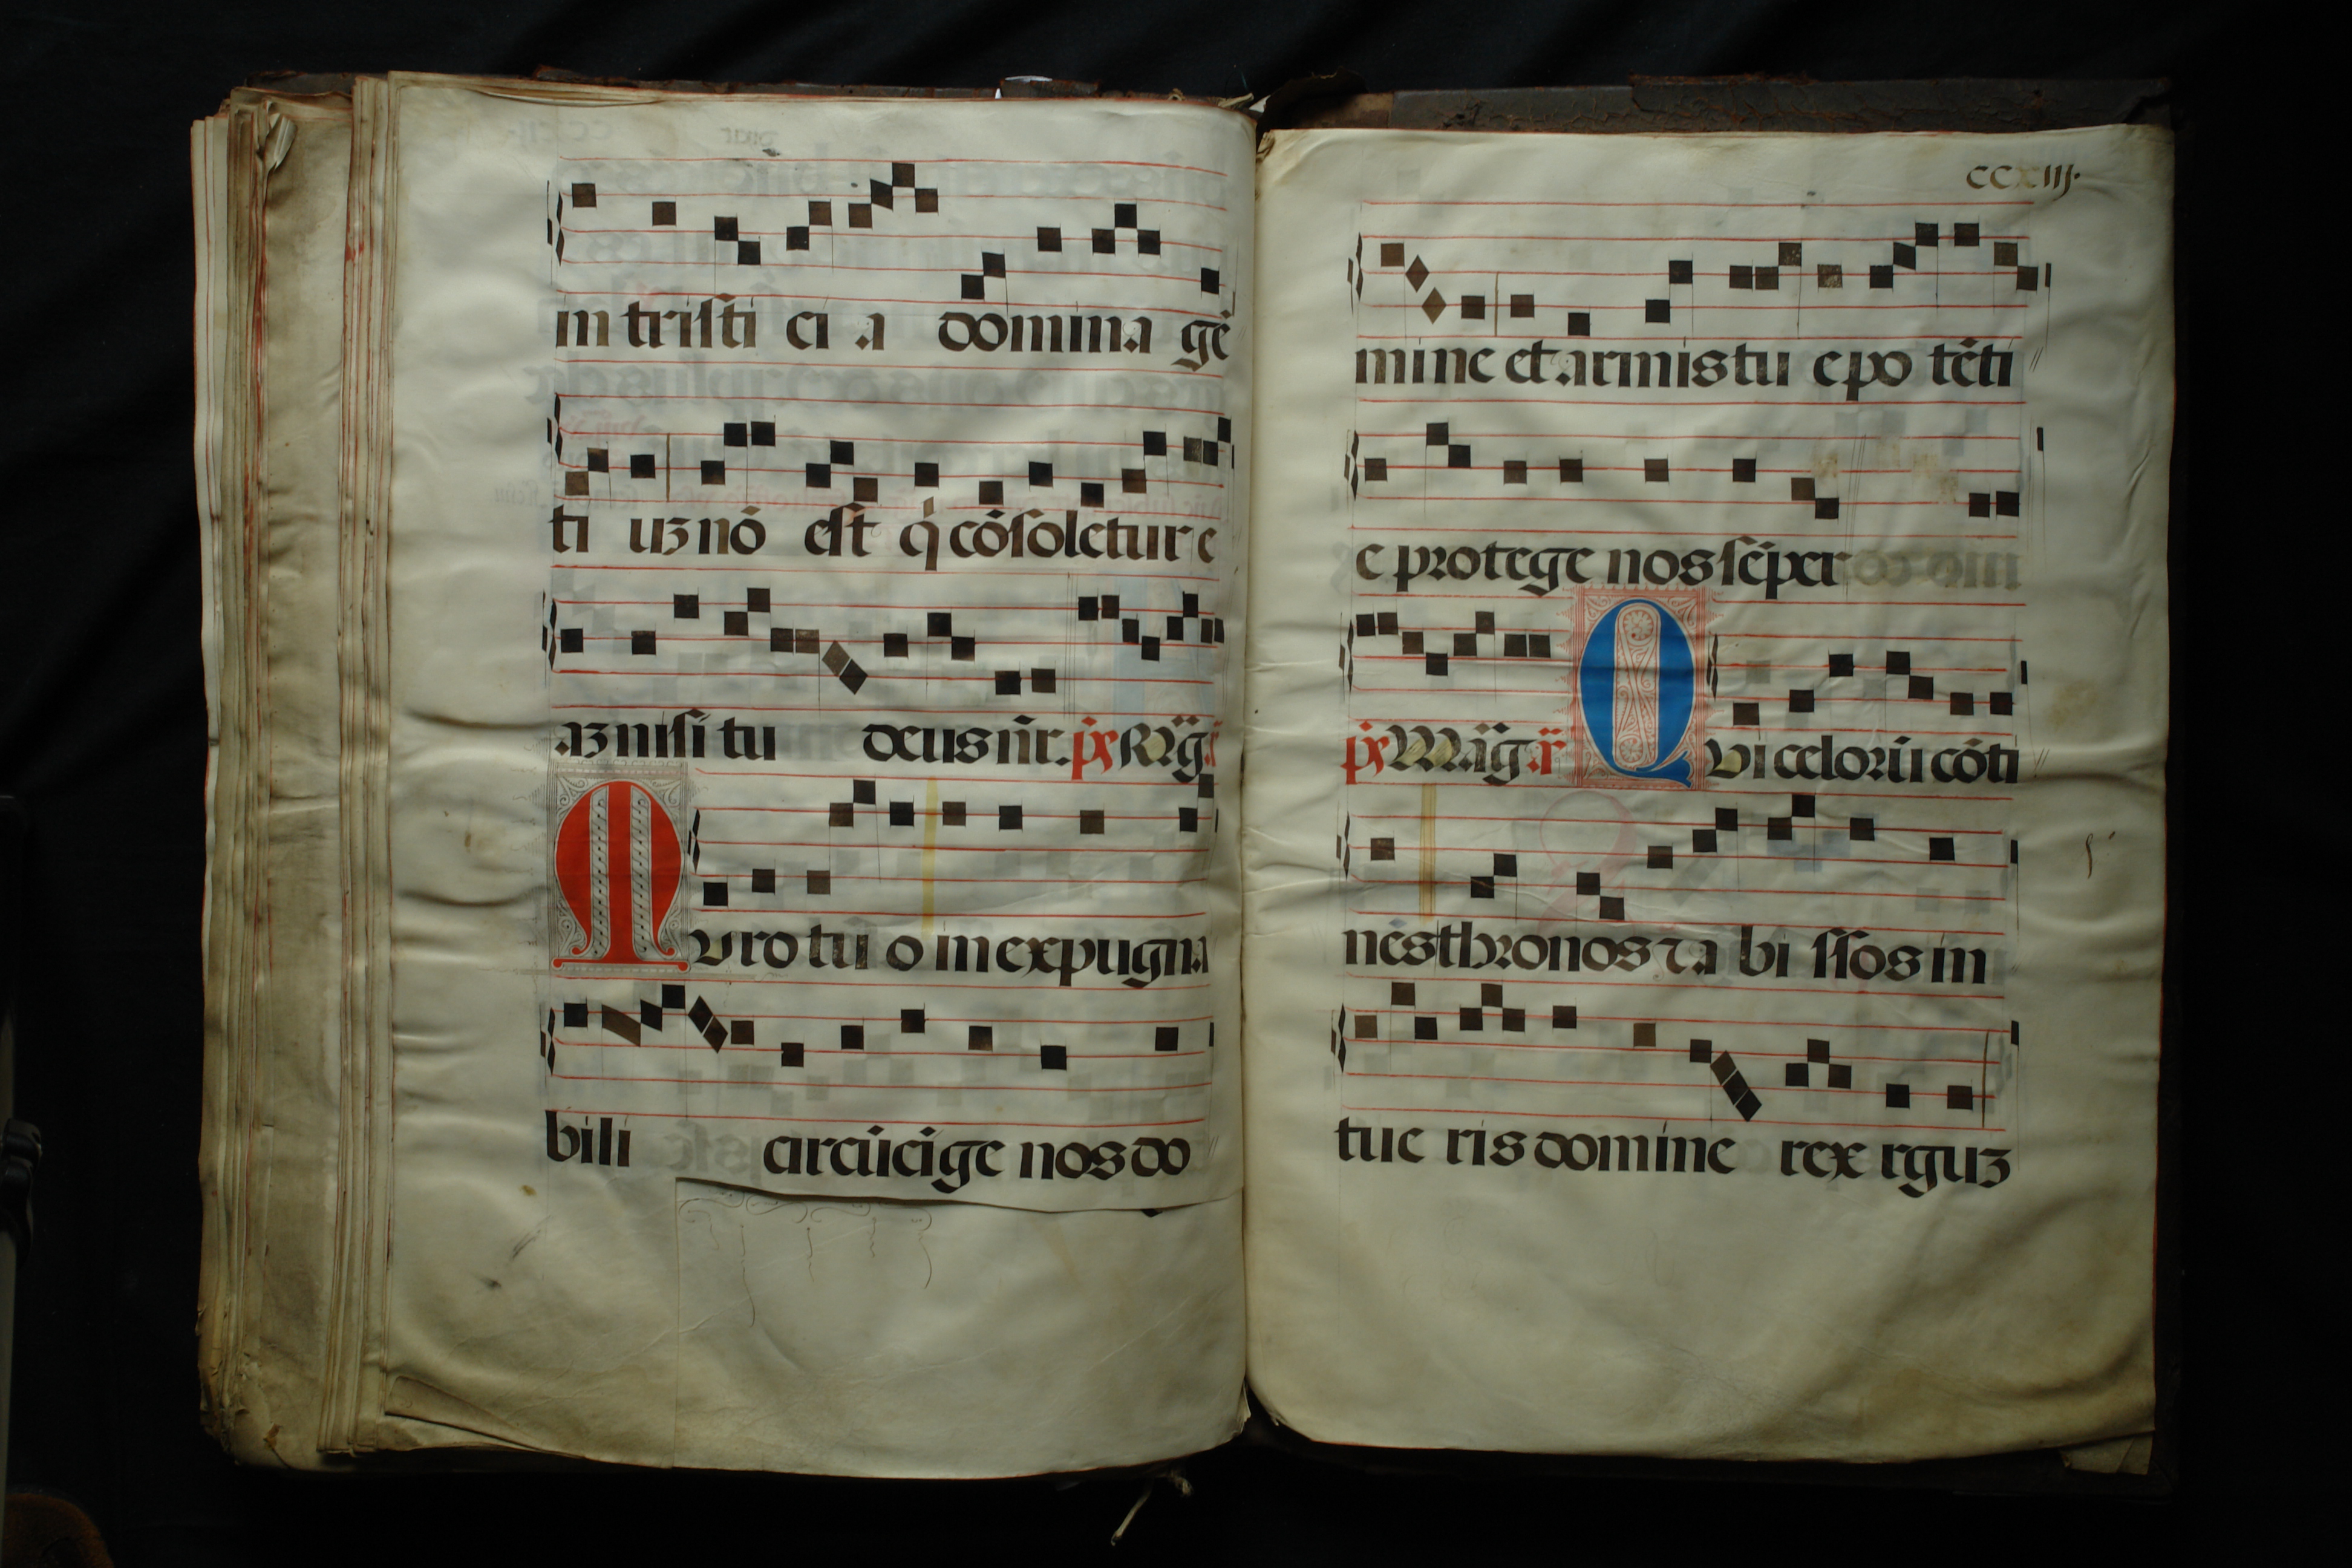 in tristi ci a domina gē
ti uꝫ nō est q̇ cōsoletur e
aꝫ nisi tu deus nr̄. p̄s Mag̃. ā
Muro tu o inexpugna
bili circūcīge nos do
CCXIIJ.
mine et armis tu e po tēti
e protege nos sēper
p̄s Mag̃. ā Qui celorū cōti
nes thronos ⁊ a bi ssos in
tue ris domine rex rguꝫ